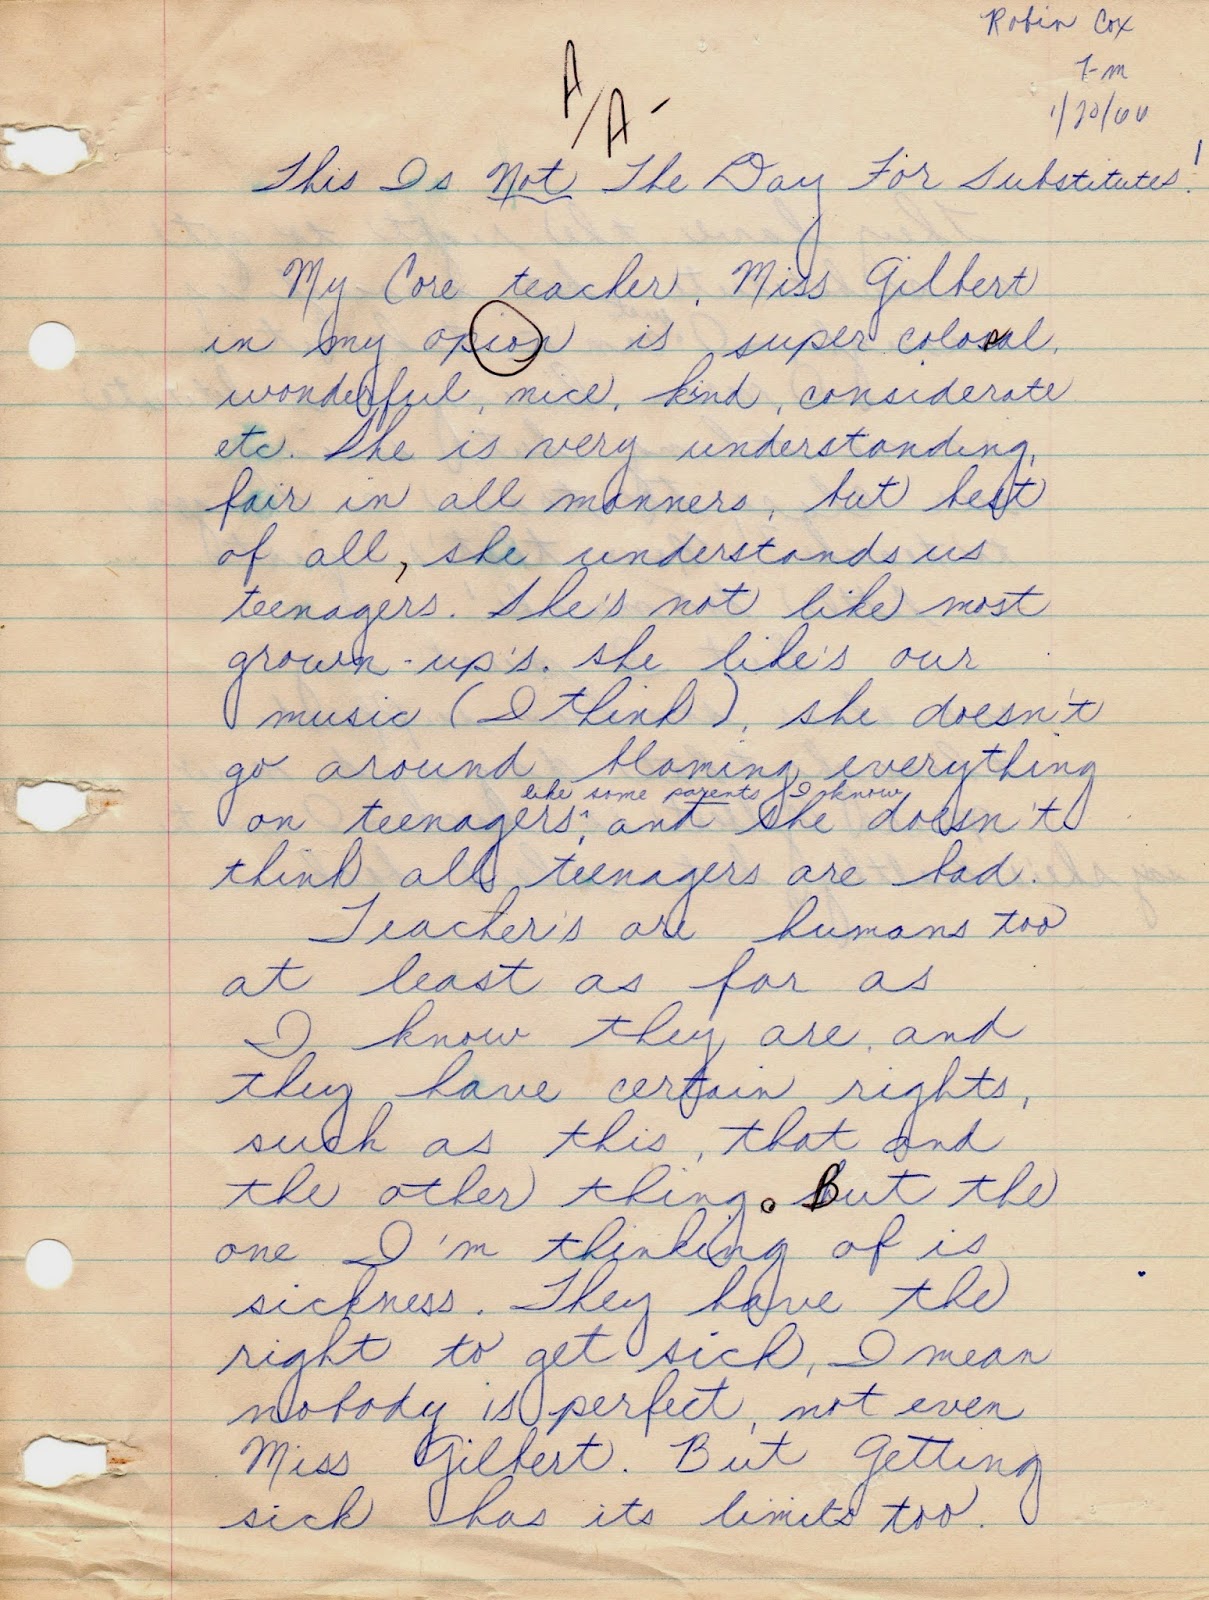 Robin Cox
7-m
1/20/66
A/A-
This Is Not The Day For Substitutes!
My Core teacher, Miss Gilbert
in my opion is super colosal,
wonderful, nice, kind, considerate
etc. She is very understanding,
fair in all manners, but best
of all, she understands us
teenagers. She's not like most
grown-up's. she like's our
music (I think), she doesn't
go around blaming everything
like some parents I know
on teenagers^, and she doesn't
think all teenagers are bad.
Teacher's are humans too
at least as far as
I know they are, and
they have certain rights,
such as this, that and
the other thing. But the
one I'm thinking of is
sickness. They have the
right to get sick, I mean
nobody is perfect, not even
Miss Gilbert. But getting
sick has its limits too.